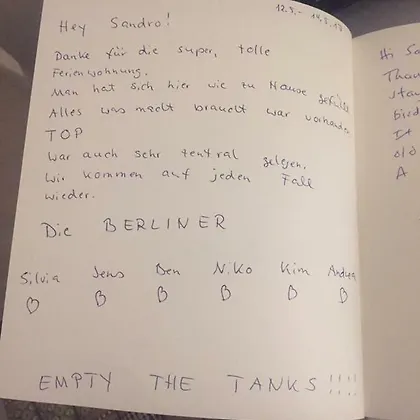 12.3. - 14.3.18
Hey Sandro!
Danke für die super, tolle
Ferienwohnung.
Man hat sich hier wie zu Hause gefühlt
Alles was macht braucht war vorhanden
TOP
War auch sehr zentral gelegen.
Wir kommen auf jeden Fall
wieder.
Die BERLINER
Silvia Jens Ben Niko Kim Andrea
EMPTY THE TANKS !!!!
Hi Sa
Than
stay
old
A